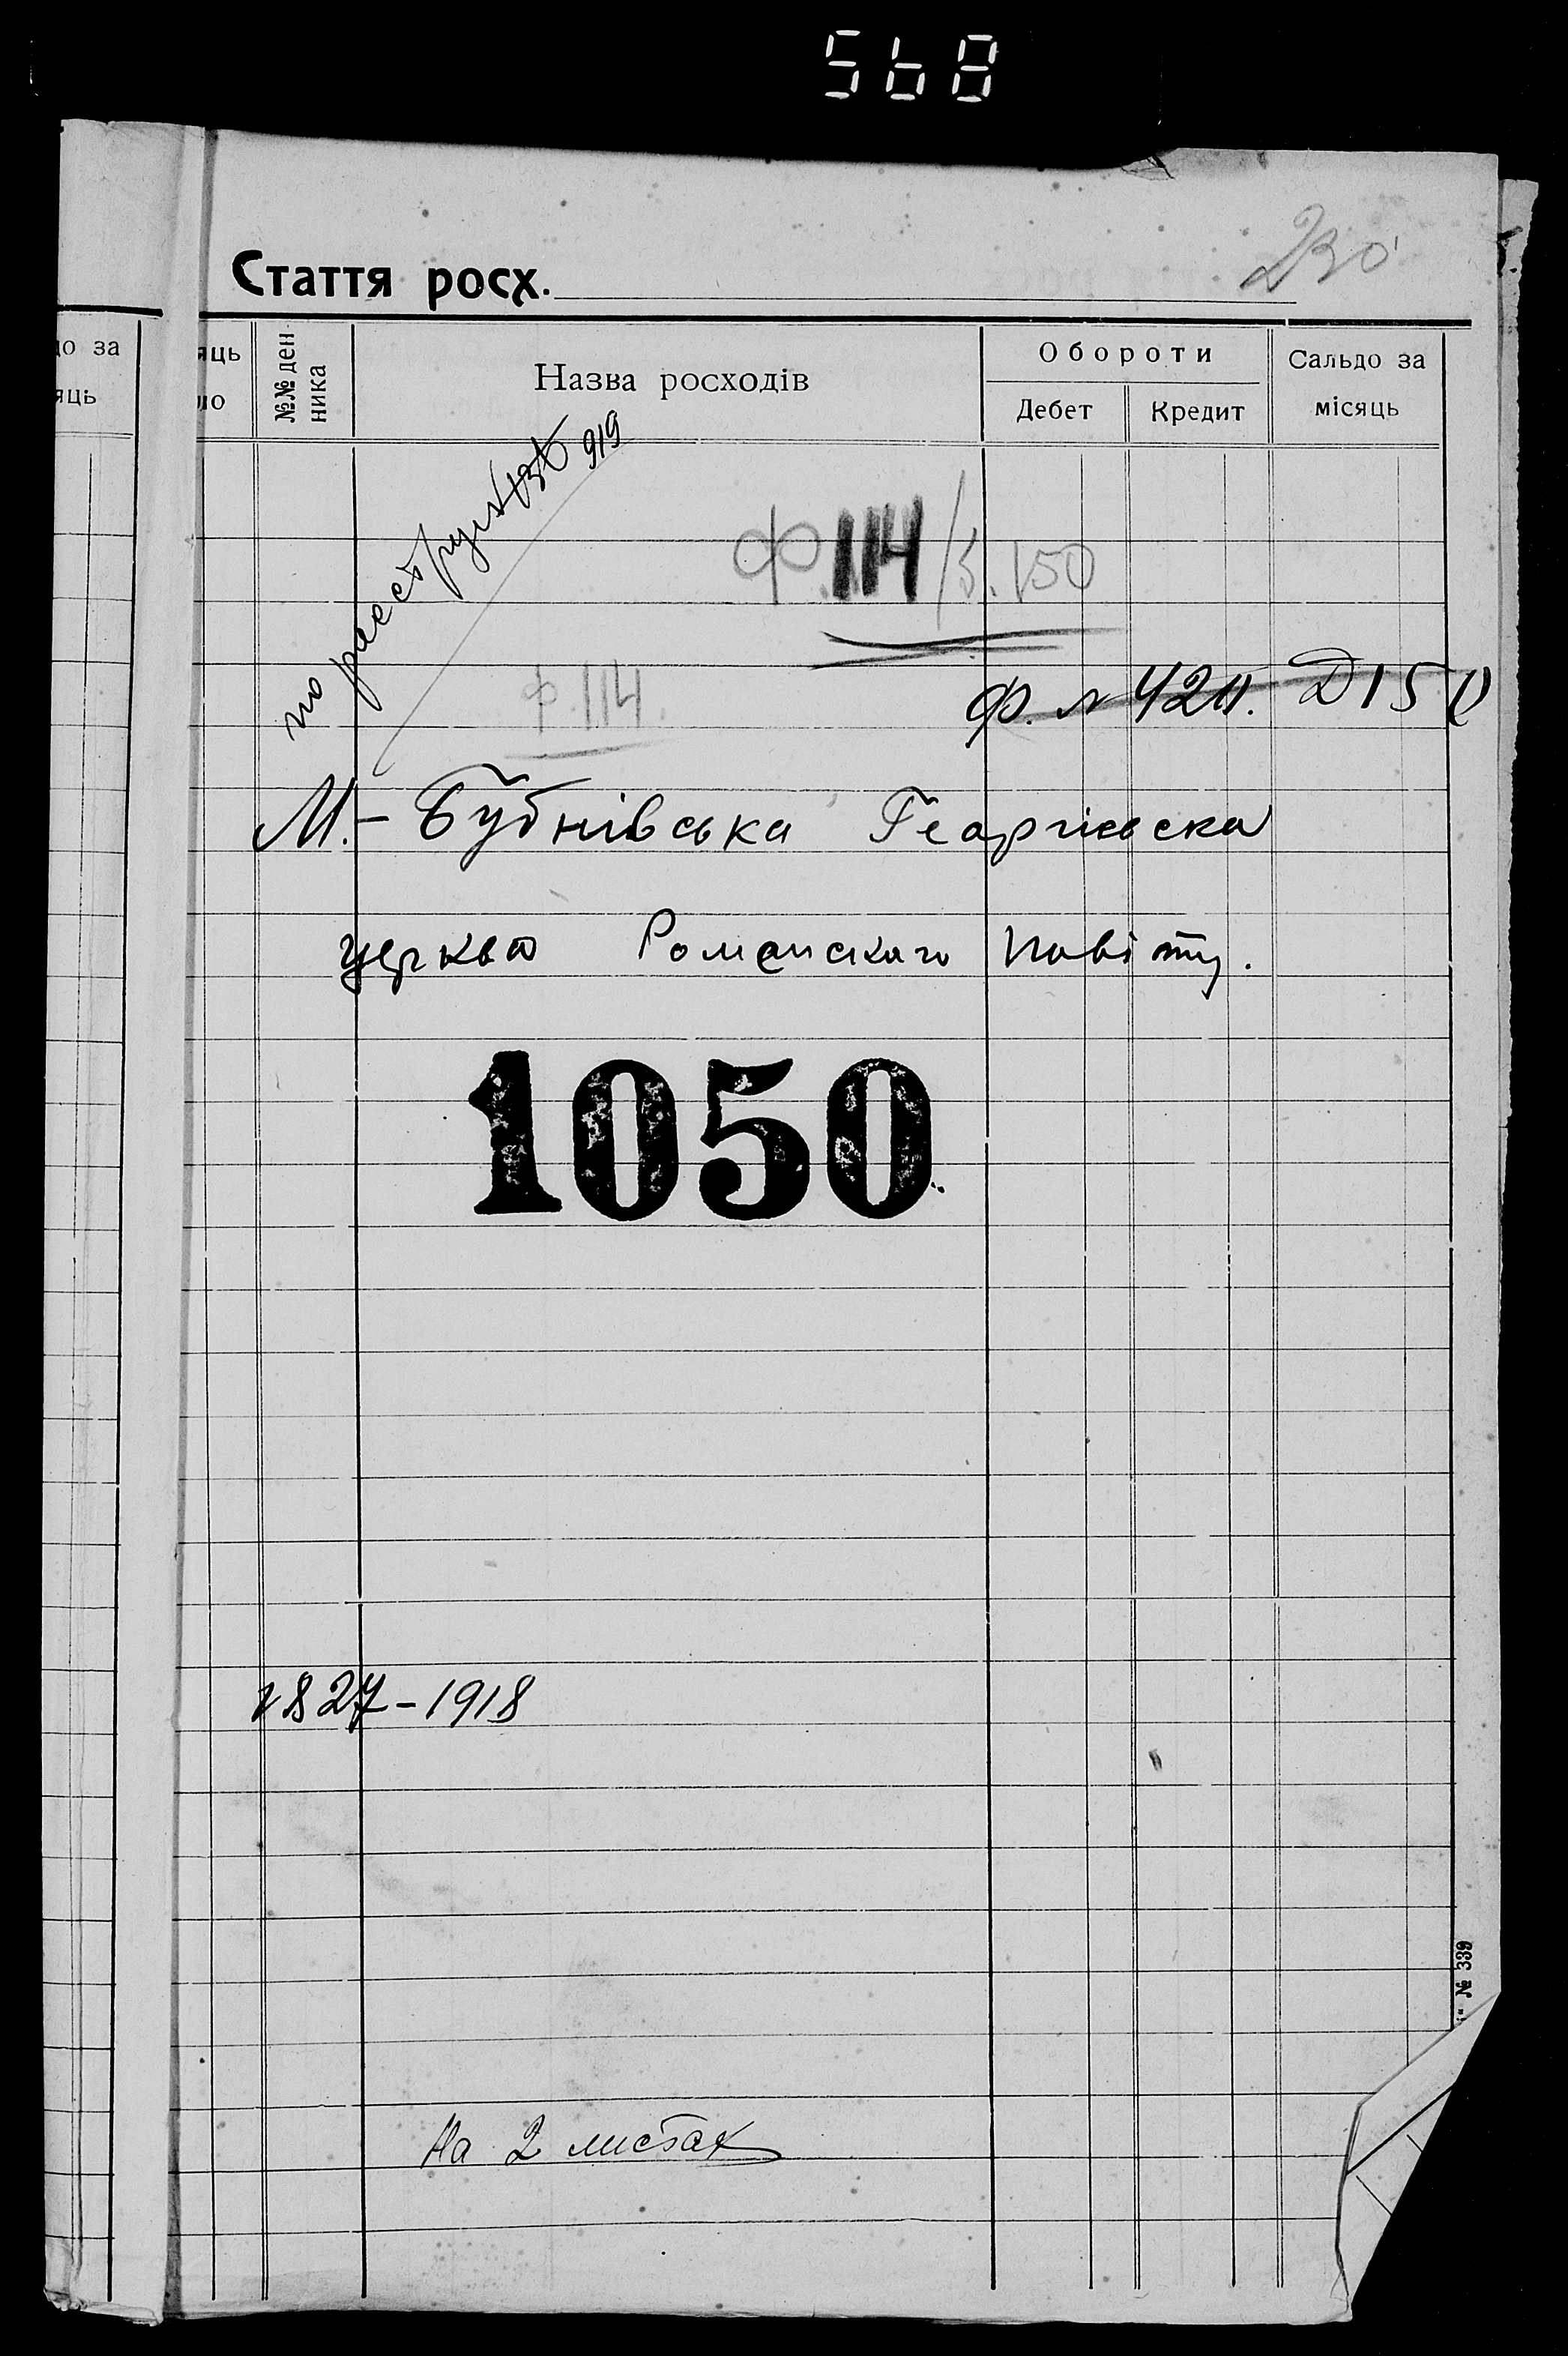 568
230
Стаття росх.
до за
яць
яць
ло
№№ ден
ника
Назва росходів
Обороти
Дебет
Кредит
Сальдо за
місяць
по реестру 919
Ф. 114 / 150
Ф. 114
Ф. N 420. Д 150
М.- Бубнівська Георгієвска
церква Роменскаго повіту.
1050
1827-1918
На 2 листах
№ 339